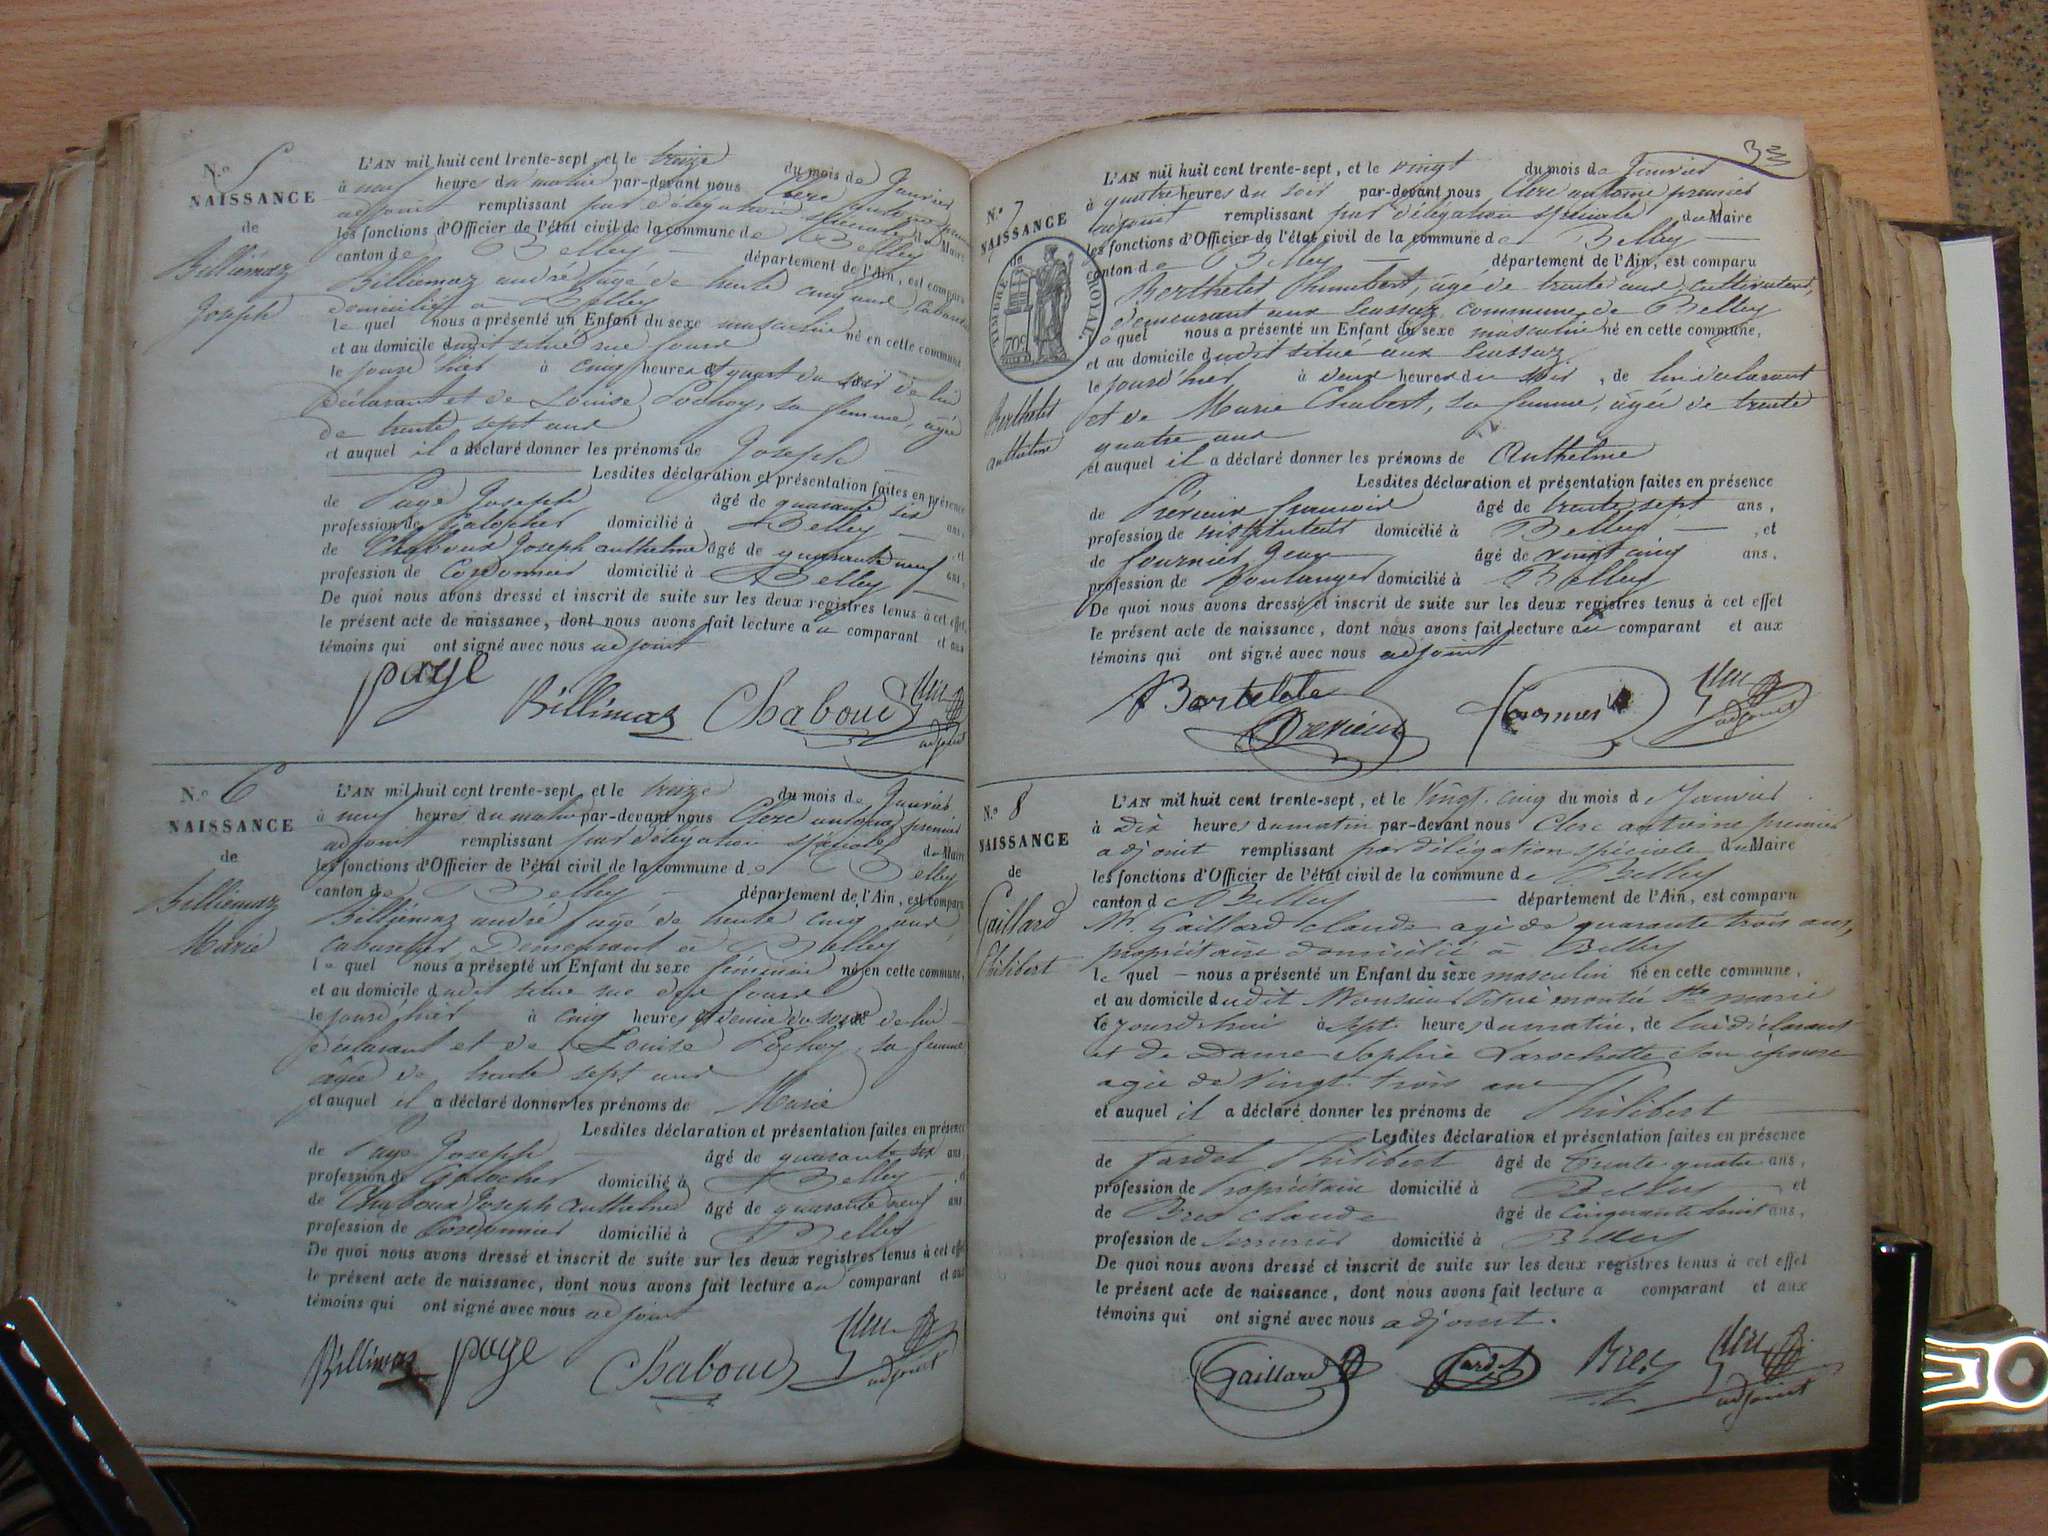 N.o 5
NAISSANCE
de
Billiémaz
Joseph
L'AN mil huit cent trente-sept, et le treize du mois de Janvier
à neuf heures du matin par-devant nous Clerc antoine premier
adjoint remplissant par délégation spéciale du Maire
les fonctions d'Officier de l'état civil de la commune de Belley
canton de Belley département de l'Ain, est comparu
Billiemaz andré âgé de trente cinq ans, Cabaretier
domicilié à Belley
le quel nous a présenté un Enfant du sexe masculin né en cette commune
et au domicile dudit situé rue
le jour d'hier à cinq heures et quart du soir de lui
déclarant et de Louise Pochoy, sa femme, âgée
de trente sept ans
et auquel il a déclaré donner les prénoms de Joseph
Lesdites déclaration et présentation faites en présence
de Paye Joseph âgé de quarante six ans,
profession de Galocher domicilié à Belley et
de Chaboux Joseph anthelme âgé de quarante neuf ans,
profession de Cordonnier domicilié à Belley
De quoi nous avons dressé et inscrit de suite sur les deux registres tenus à cet effet,
le présent acte de naissance, dont nous avons fait lecture au comparant et aux
témoins qui ont signé avec nous adjoint
paye
Billimaz Chaboux Clerc
adjoint
N.o 6
NAISSANCE
de
Billiémaz
Marie
L'AN mil huit cent trente-sept, et le treize du mois de Janvier
à neuf heures du matin par-devant nous Clerc antoine premier
adjoint remplissant par délégation spéciale du Maire
les fonctions d'Officier de l'état civil de la commune de Belley
canton de Belley département de l'Ain, est comparu
Billiémaz andré âgé de trente cinq ans
cabaretier Demeurant à Belley
le quel nous a présenté un Enfant du sexe féminin né en cette commune,
et au domicile dudit situé rue des
le jour d'hier à cinq heures et demie du soir de lui
déclarant et de Louise Pochoy, sa femme
âgée de trente sept ans
et auquel il a déclaré donner les prénoms de Marie
Lesdites déclaration et présentation faites en présence
de Paye Joseph âgé de quarante six ans,
profession de Galocher domicilié à Belley et
de Chaboux Joseph Anthelme âgé de quarante neuf ans,
profession de Cordonnier domicilié à Belley
De quoi nous avons dressé et inscrit de suite sur les deux registres tenus à cet effet
le présent acte de naissance, dont nous avons fait lecture au comparant et aux
témoins qui ont signé avec nous adjoint
Billimaz paye Chaboux Clerc
adjoint
3e
N.o 7
NAISSANCE
de
TIMBRE ROYAL
70c
Berthelet
anthelme
L'AN mil huit cent trente-sept, et le vingt du mois de Janvier
à quatre heures du soir par-devant nous Clerc antoine premier
adjoint remplissant par délégation spéciale du Maire
les fonctions d'Officier de l'état civil de la commune de Belley
canton de Belley département de l'Ain, est comparu
Berthelet Humbert, âgé de trente ans, cultivateur,
demeurant aux commune de Belley
le quel nous a présenté un Enfant du sexe masculin né en cette commune,
et au domicile dudit situé aux
le jour d'hier à deux heures du soir, de lui déclarant
et de Marie Chabert, sa femme, âgée de trente
quatre ans
et auquel il a déclaré donner les prénoms de Anthelme
Lesdites déclaration et présentation faites en présence
de Prévieux françois âgé de trente sept ans,
profession de instituteur domicilié à Belley, et
de fournier Jean âgé de vingt cinq ans,
profession de boulanger domicilié à Belley
De quoi nous avons dressé et inscrit de suite sur les deux registres tenus à cet effet
le présent acte de naissance, dont nous avons fait lecture au comparant et aux
témoins qui ont signé avec nous adjoint
Bertelete Clerc
Prévieux fournier adjoint
N.o 8
NAISSANCE
de
Gaillard
Philibert
L'AN mil huit cent trente-sept, et le Vingt-cinq du mois d Janvier
à dix heures du matin par-devant nous Clerc antoine premier
adjoint remplissant par délégation spéciale du Maire
les fonctions d'Officier de l'état civil de la commune de Belley
canton d Belley département de l'Ain, est comparu
Mr Gaillard claude agé de quarante trois ans,
propriétaire domicilié à Belley
le quel nous a présenté un Enfant du sexe masculin né en cette commune,
et au domicile dudit Monsieur situé montée Ste marie
le jourd'hui à sept heures du matin, de lui déclarant
et de Dame Sophie Larochette son épouse
agée de Vingt-trois ans
et auquel il a déclaré donner les prénoms de Philibert
Lesdites déclaration et présentation faites en présence
de Fardel Philibert âgé de trente quatre ans,
profession de Propriétaire domicilié à Belley et
de Bres claude âgé de cinquante huit ans,
profession de Serrurier domicilié à Belley
De quoi nous avons dressé et inscrit de suite sur les deux registres tenus à cet effet
le présent acte de naissance, dont nous avons fait lecture a comparant et aux
témoins qui ont signé avec nous adjoint.
Gaillard fardel Bres Clerc
adjoint